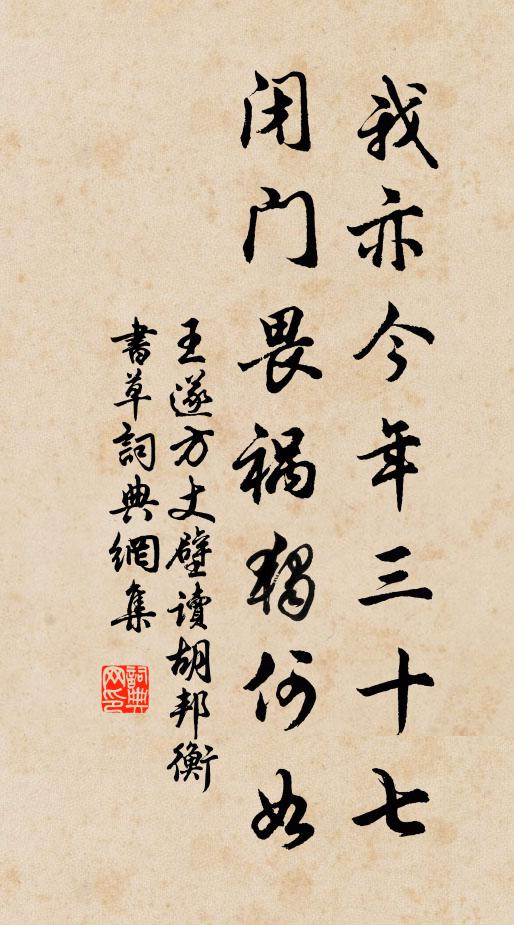 我亦今年三十七
闭门畏祸独何如
王遂方丈壁读胡邦衡
書草詞典網集
詞典网印